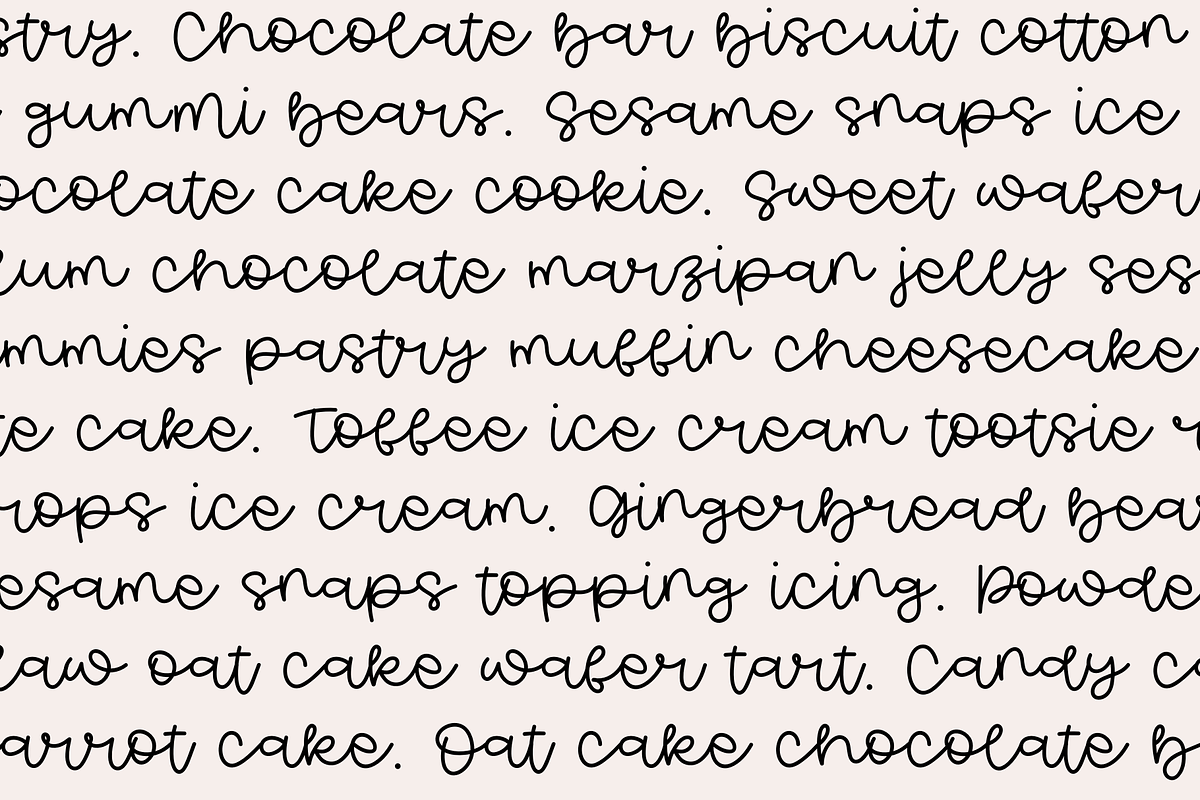 stry. Chocolate bar biscuit cotton
gummi bears. Sesame snaps ice
ocolate cake cookie. Sweet wafer
lum chocolate marzipan jelly ses
mmies pastry muffin cheesecake
te cake. Toffee ice cream tootsie r
rops ice cream. Gingerbread bear
esame snaps topping icing. Powde
law oat cake wafer tart. Candy co
arrot cake. Oat cake chocolate b